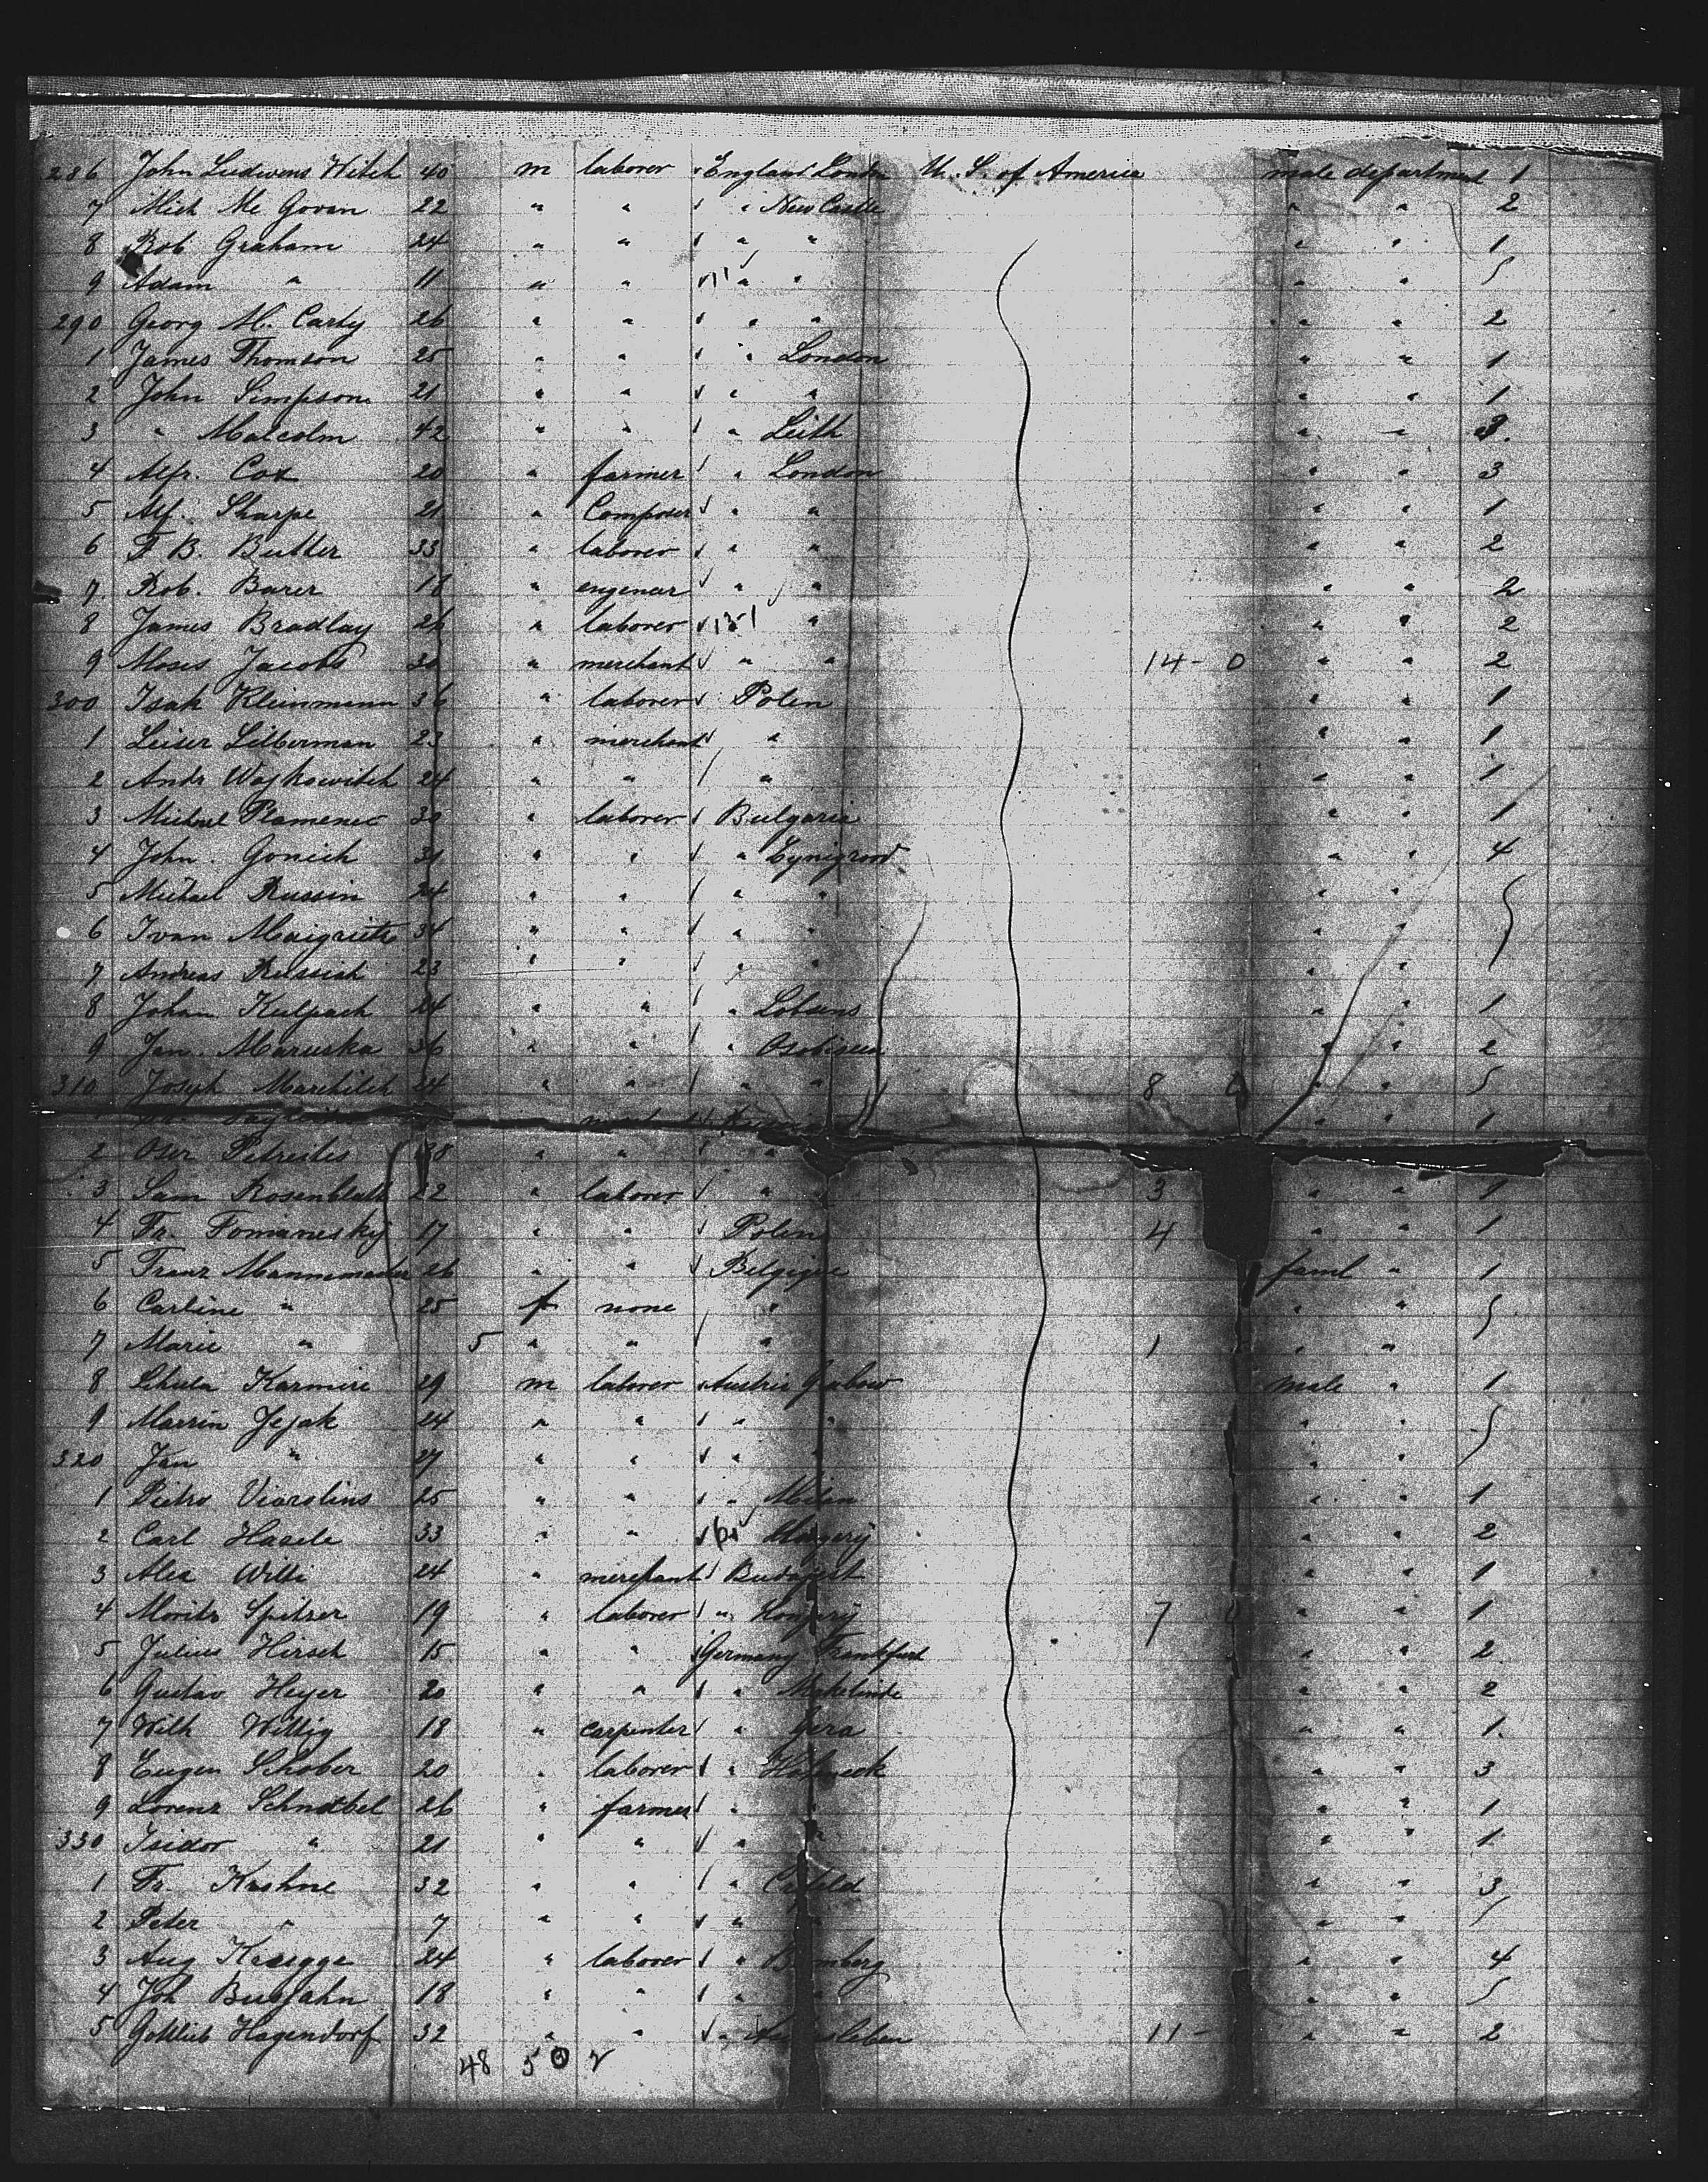 286 John Ludwens Witch 40 m laborer England London U. S. of America male department 1
7 Mich Mc Govan 22 " " " New Castle " " 2
8 Rob Graham 24 " " " " " " 1
9 Adam " 11 " " 11 " " " "
290 Georg M. Carty 26 " " " " " " 2
1 James Thomson 25 " " " London " " 1
2 John Simpson 21 " " " " " " 1
3 " Malcolm 42 " " " Leith " "
4 Alfr. Cox 20 " farmer " London " " 3
5 Alf. Sharpe 21 " Composer " " " " 1
6 F B. Butler 33 " laborer " " " " 2
7. Rob. Barer 18 " engenar " " " " 2
8 James Bradlay 26 " laborer " " " 2
9 Moses Jacobs 30 " merchant " " 14 - 0 " " 2
300 Isak Kleinmann 36 " laborer Polen " " 1
1 Leiser Lilberman 23 " merchant " " " 1
2 Andr Wojkowitch 24 " " " " " 1
3 Michael Ramenec 30 " laborer Bulgaria " " 1
4 John. Gonich 31 " " " " " 4
5 Michael Russin 24 " " " " " "
6 Ivan Maigrietz 34 " " " " " "
7 Andreas Russich 23 " " " " " "
8 Johan Kulpach 24 " " " Lobsens " " 1
9 Jan. Maruska 36 " " " " " 2
310. Joseph Marchilch 24 " " " " 8 " "
" " 1
2 Oser Petreites 38 " " "
3 Sam Rosenblatt 22 " laborer " " 3 " " 1
4 Fr. Fomaneski 17 " " Polen 4 " " 1
5 Franz Mannmacher 26 " " Belgique faml " 1
6 Carline " 25 f none " " "
7 Marie " 5 " " " 1 " "
8 Schula Karmire 29 m laborer Austria Gabow male " 1
9 Marrin Jejak 24 " " " " " "
320 Jan " 27 " " " " " "
1 Pietro Viorslins 25 " " " Milan " " 1
2 Carl Hasele 33 " " " " 2
3 Alex Willi 24 " merchant Budapest " " 1
4 Moritz Spitzer 19 " laborer " Hongrij 7 " " 1
5 Julius Hirsch 15 " " Germany Frankfurt " " 2
6 Gustav Heyer 20 " " " " " 2
7 Wilh Wittig 18 " carpenter " Gera " " 1.
8 Eugen Schober 20 " laborer " " " 3
9 Lorenz Schnabel 26 " farmer " " " 1
330 Isidor " 21 " " " " " " 1
1 Fr. Krahne 32 " " " " " 3
2 Peter " 7 " " " " "
3 Aug Kruegge 24 " laborer " " " 4
4 Joh Busjahn 18 " " " " "
5 Gottlieb Hagendorf 32 " " " 11 - " " 2
48 50 2